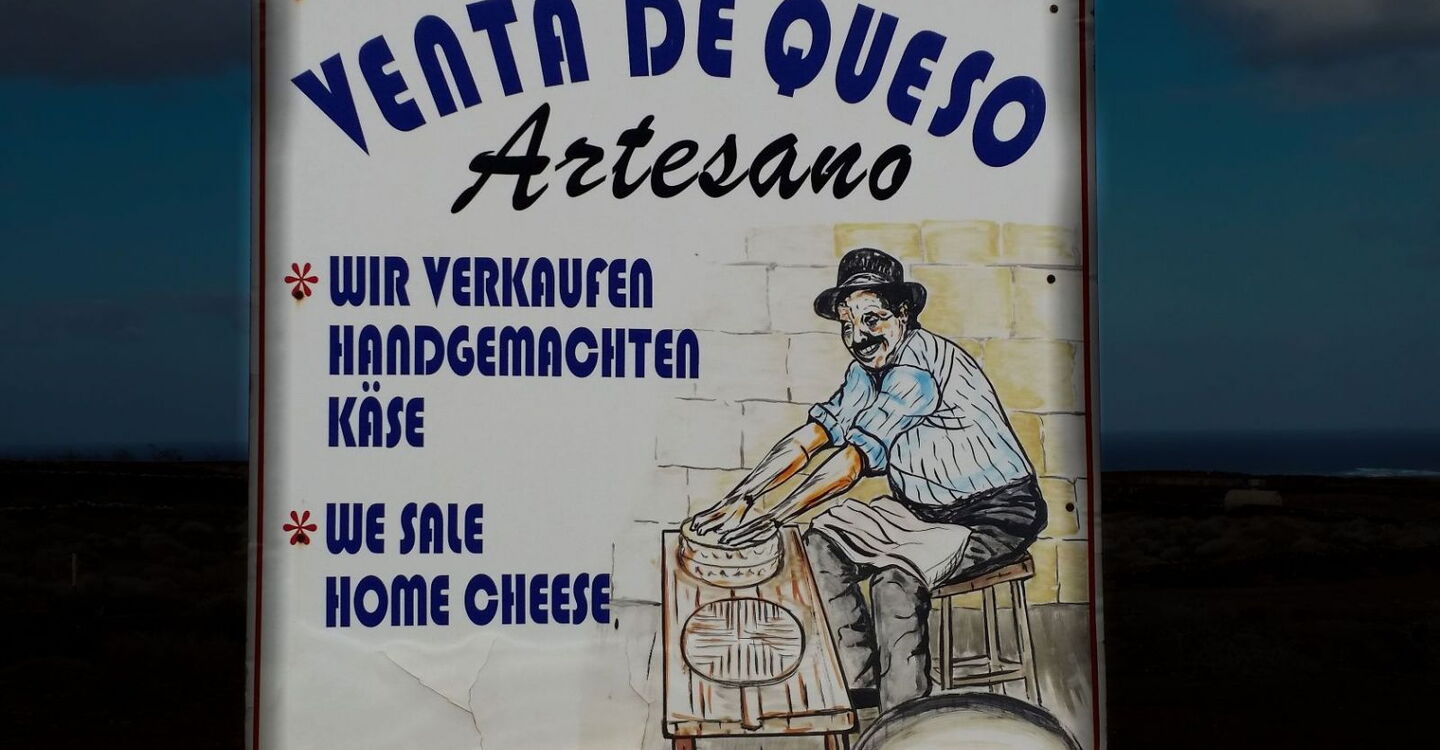 VENTA DE QUESO
Artesano
* WIR VERKAUFEN
HANDGEMACHTEN
KÄSE
* WE SALE
HOME CHEESE